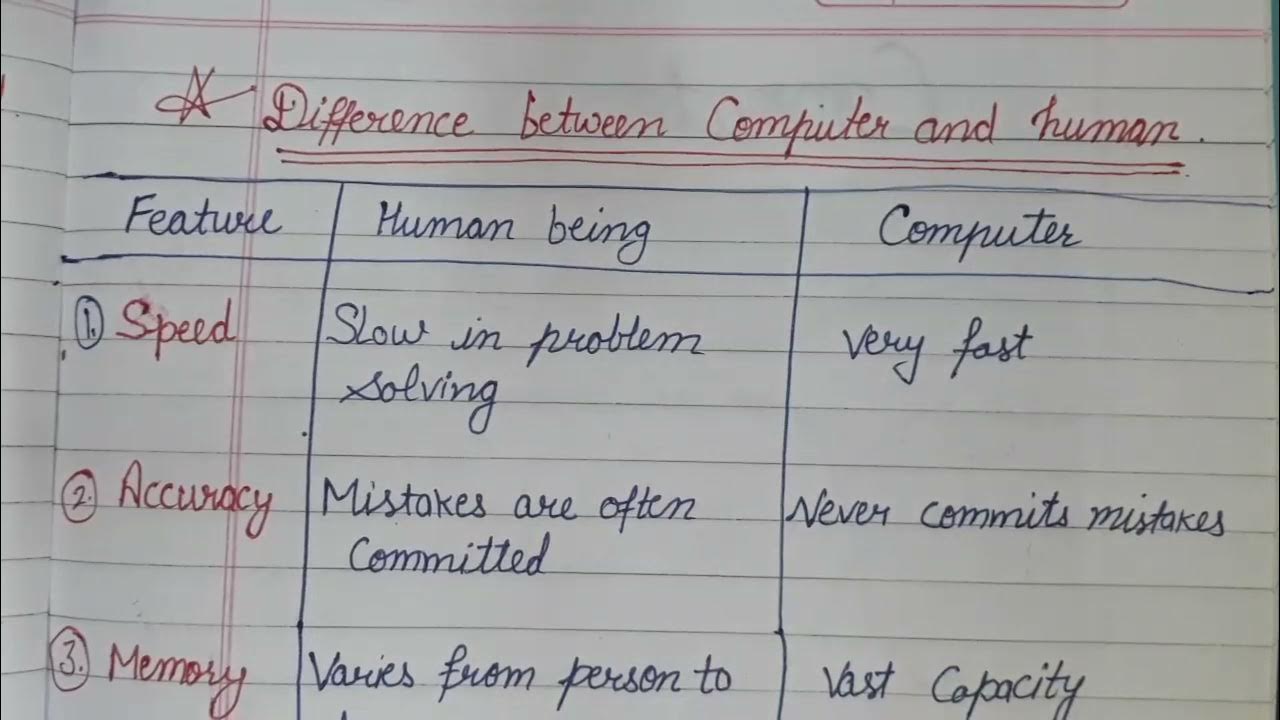 Difference between Computer and human.
Feature Human being Computer
1. Speed Slow in problem very fast
solving
2. Accuracy Mistakes are often Never commits mistakes
Committed
3. Memory Varies from person to Vast Capacity